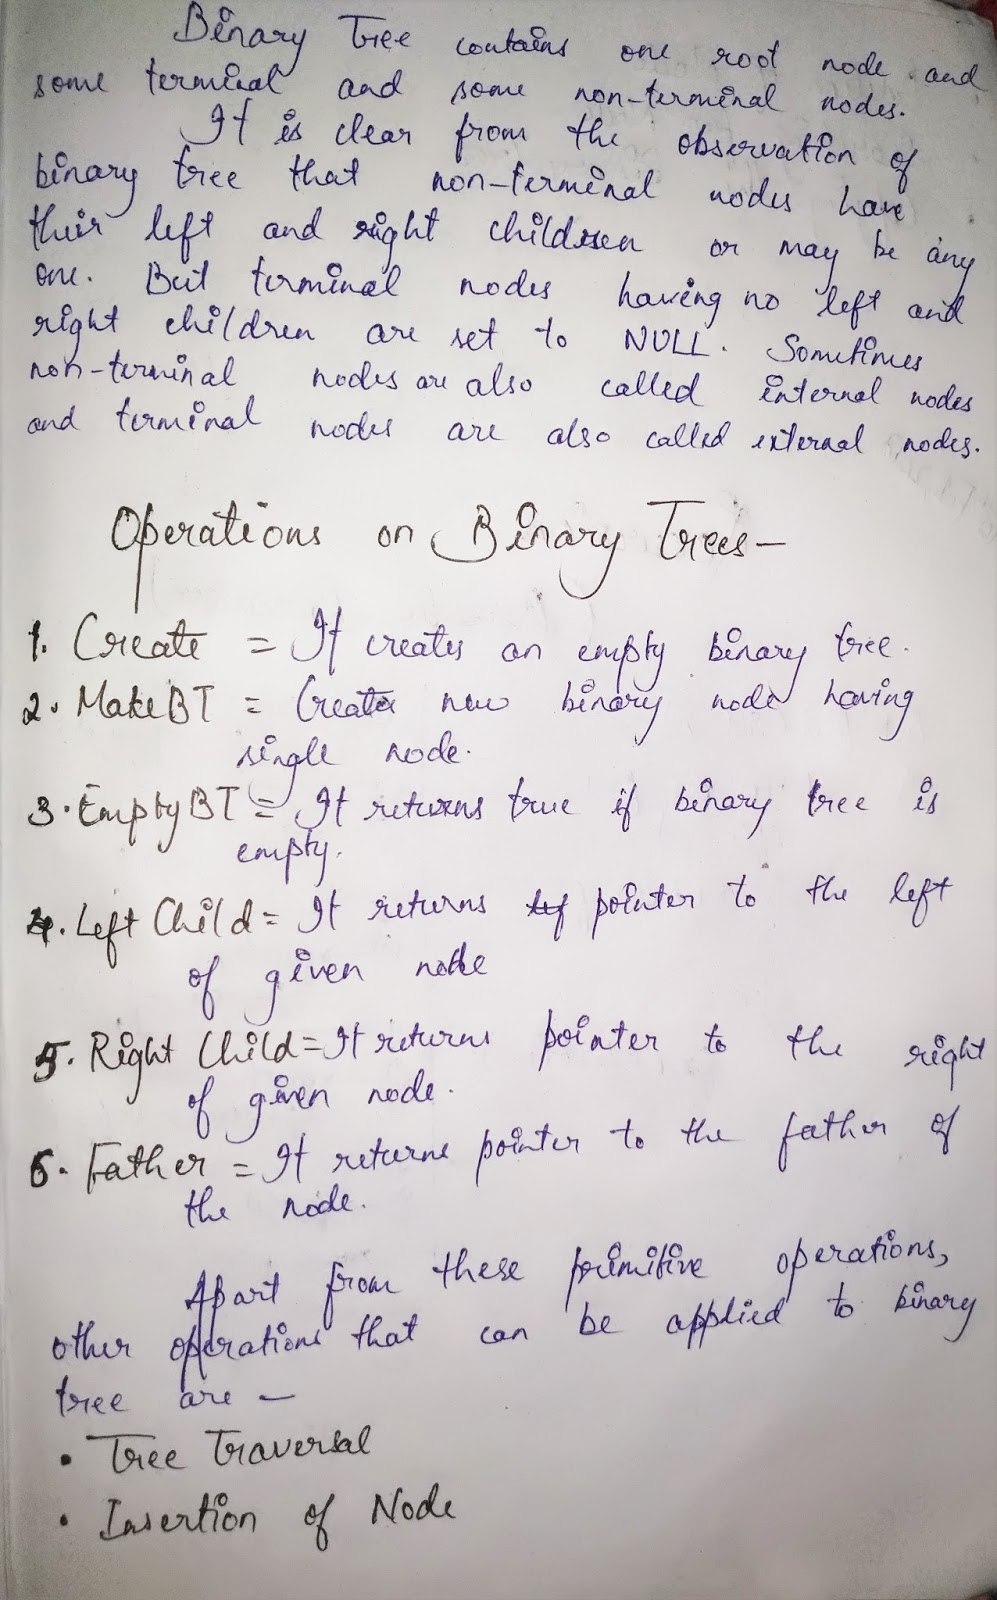 Binary Tree contains one root node and
some termical and some non-terminal nodes.
It is clear from the observation of
binary tree that non-terminal nodes have
their left and right children or may be any
one. But terminal nodes having no left and
right children are set to NULL. Sometimes
non-terminal nodes are also called internal nodes
and terminal nodes are also called external nodes.
Operations on Binary Trees-
1. Create = It creates an empty binary tree.
2. MakeBT = Create new binary node having
single node.
3. EmptyBT = It returns true if binary tree is
empty.
4. Left Child = It returns pointer to the left
of given node
5. Right Child = It returns pointer to the right
of given node.
6. Father = It returns pointer to the father of
the node.
Apart from these primitive operations,
other operations that can be applied to binary
tree are -
• Tree Traversal
• Insertion of Node